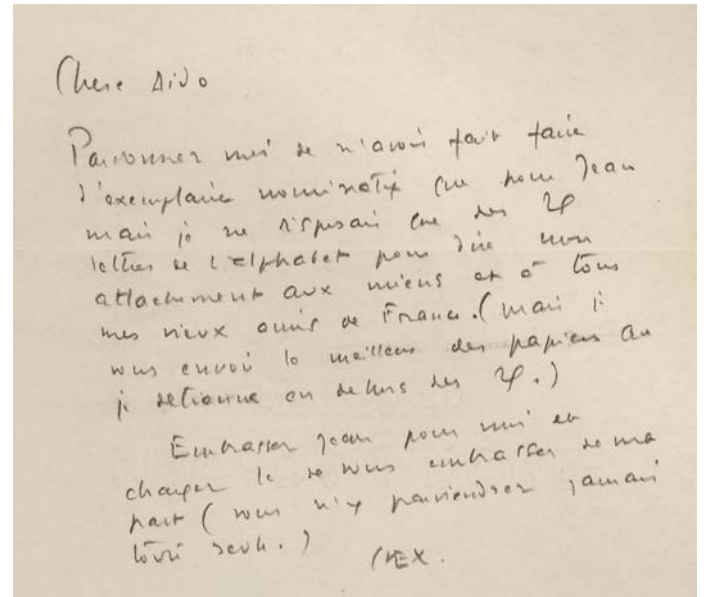 Chere Dido
Pardonner moi de n'avoir fait faire
d'exemplaire nominatif que pour Jean
mais je ne disposais que des 24
lettres de l'alphabet pour dire mon
attachement aux miens et à tous
mes vieux amis de France. (mais je
vous envoi le meilleur des papiers que
je detienne en dehors des 24.)
Embrasser Jean pour moi et
charger le de vous embrasser de ma
part (vous n'y parviendrer jamais
toute seule.)